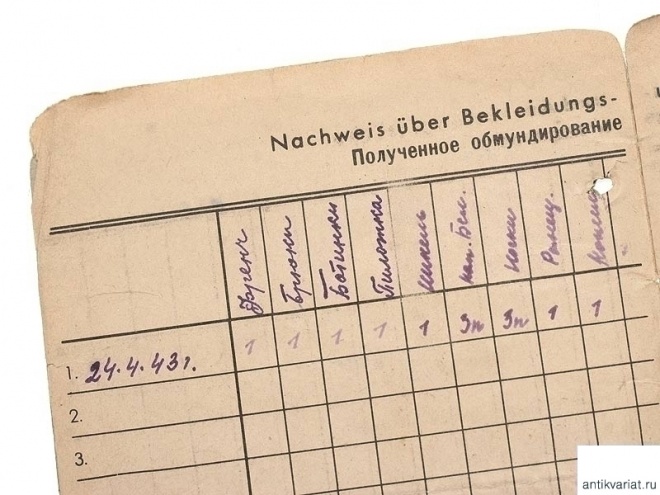 Nachweis über Bekleidungs-
Полученное обмундирование
Френч Брюки Ботинки Пилотка Шинель нат. Бел. Носки Ранец
1. 24.4.43г. 1 1 1 1 1 3п 3п 1 1
2.
3.
antikvariat.ru